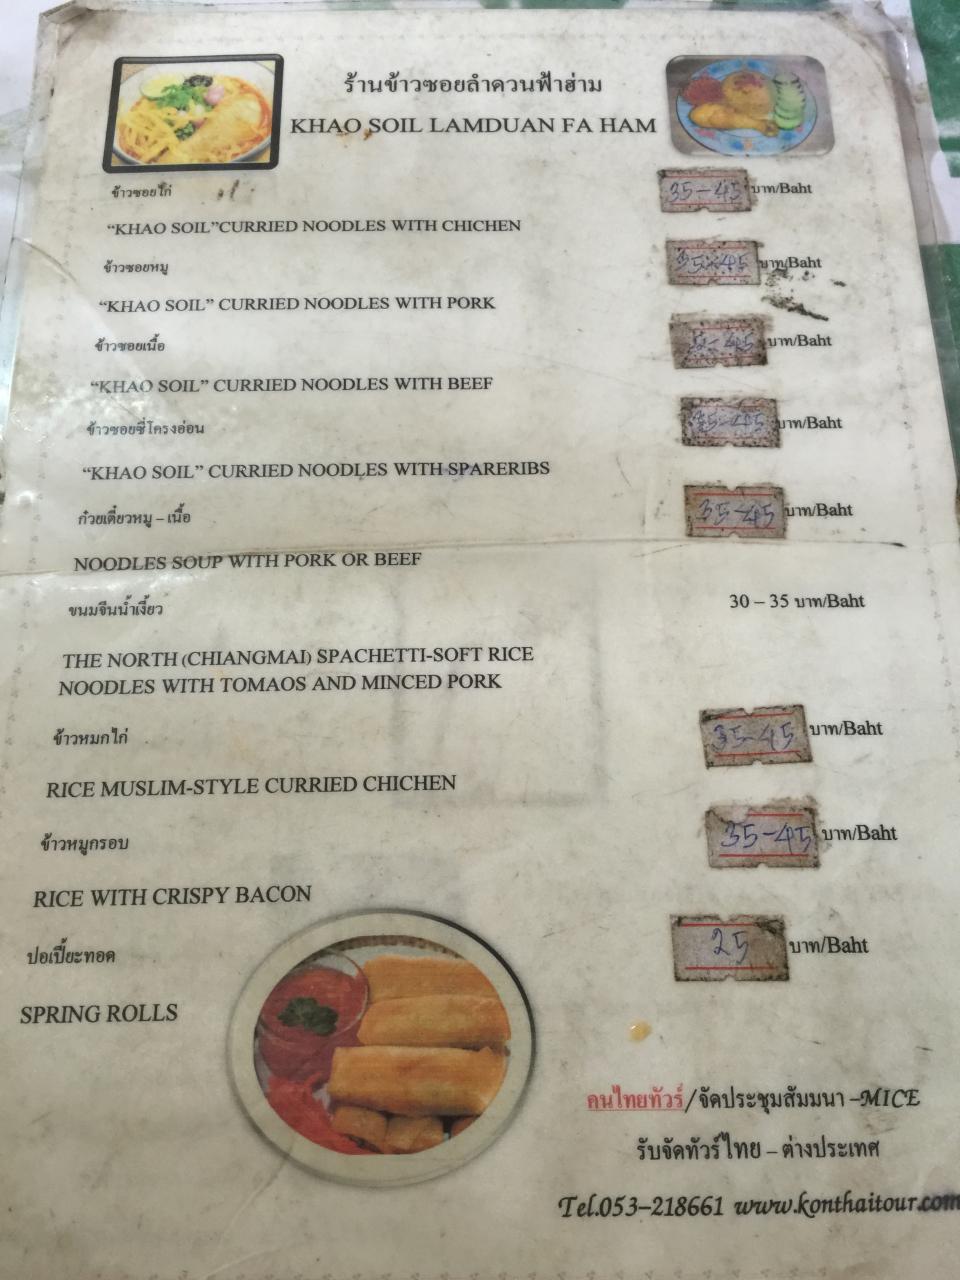 ร้านข้าวซอยลำดวนฟ้าฮ่าม
KHAO SOIL LAMDUAN FA HAM
ข้าวซอยไก่ 35-45 บาท/Baht
“KHAO SOIL”CURRIED NOODLES WITH CHICHEN
ข้าวซอยหมู 35-45 บาท/Baht
“KHAO SOIL” CURRIED NOODLES WITH PORK
ข้าวซอยเนื้อ 35-45 บาท/Baht
“KHAO SOIL” CURRIED NOODLES WITH BEEF
ข้าวซอยซี่โครงอ่อน 35-45 บาท/Baht
“KHAO SOIL” CURRIED NOODLES WITH SPARERIBS
ก๋วยเตี๋ยวหมู – เนื้อ 35-45 บาท/Baht
NOODLES SOUP WITH PORK OR BEEF
ขนมจีนน้ำเงี้ยว 30 – 35 บาท/Baht
THE NORTH (CHIANGMAI) SPACHETTI-SOFT RICE
NOODLES WITH TOMAOS AND MINCED PORK
ข้าวหมกไก่ 35-45 บาท/Baht
RICE MUSLIM-STYLE CURRIED CHICHEN
ข้าวหมูกรอบ 35-45 บาท/Baht
RICE WITH CRISPY BACON
ปอเปี๊ยะทอด 25 บาท/Baht
SPRING ROLLS
คนไทยทัวร์/จัดประชุมสัมมนา –MICE
รับจัดทัวร์ไทย – ต่างประเทศ
Tel.053-218661 www.konthaitour.com